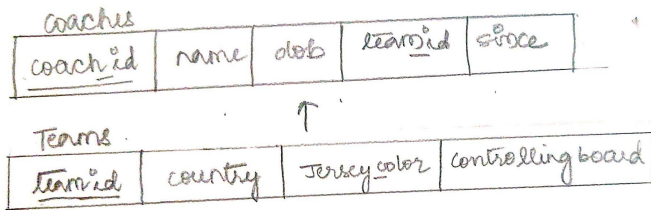 coaches
coach_id name dob team_id since
↑
Teams
team_id country Jersey_color controlling board